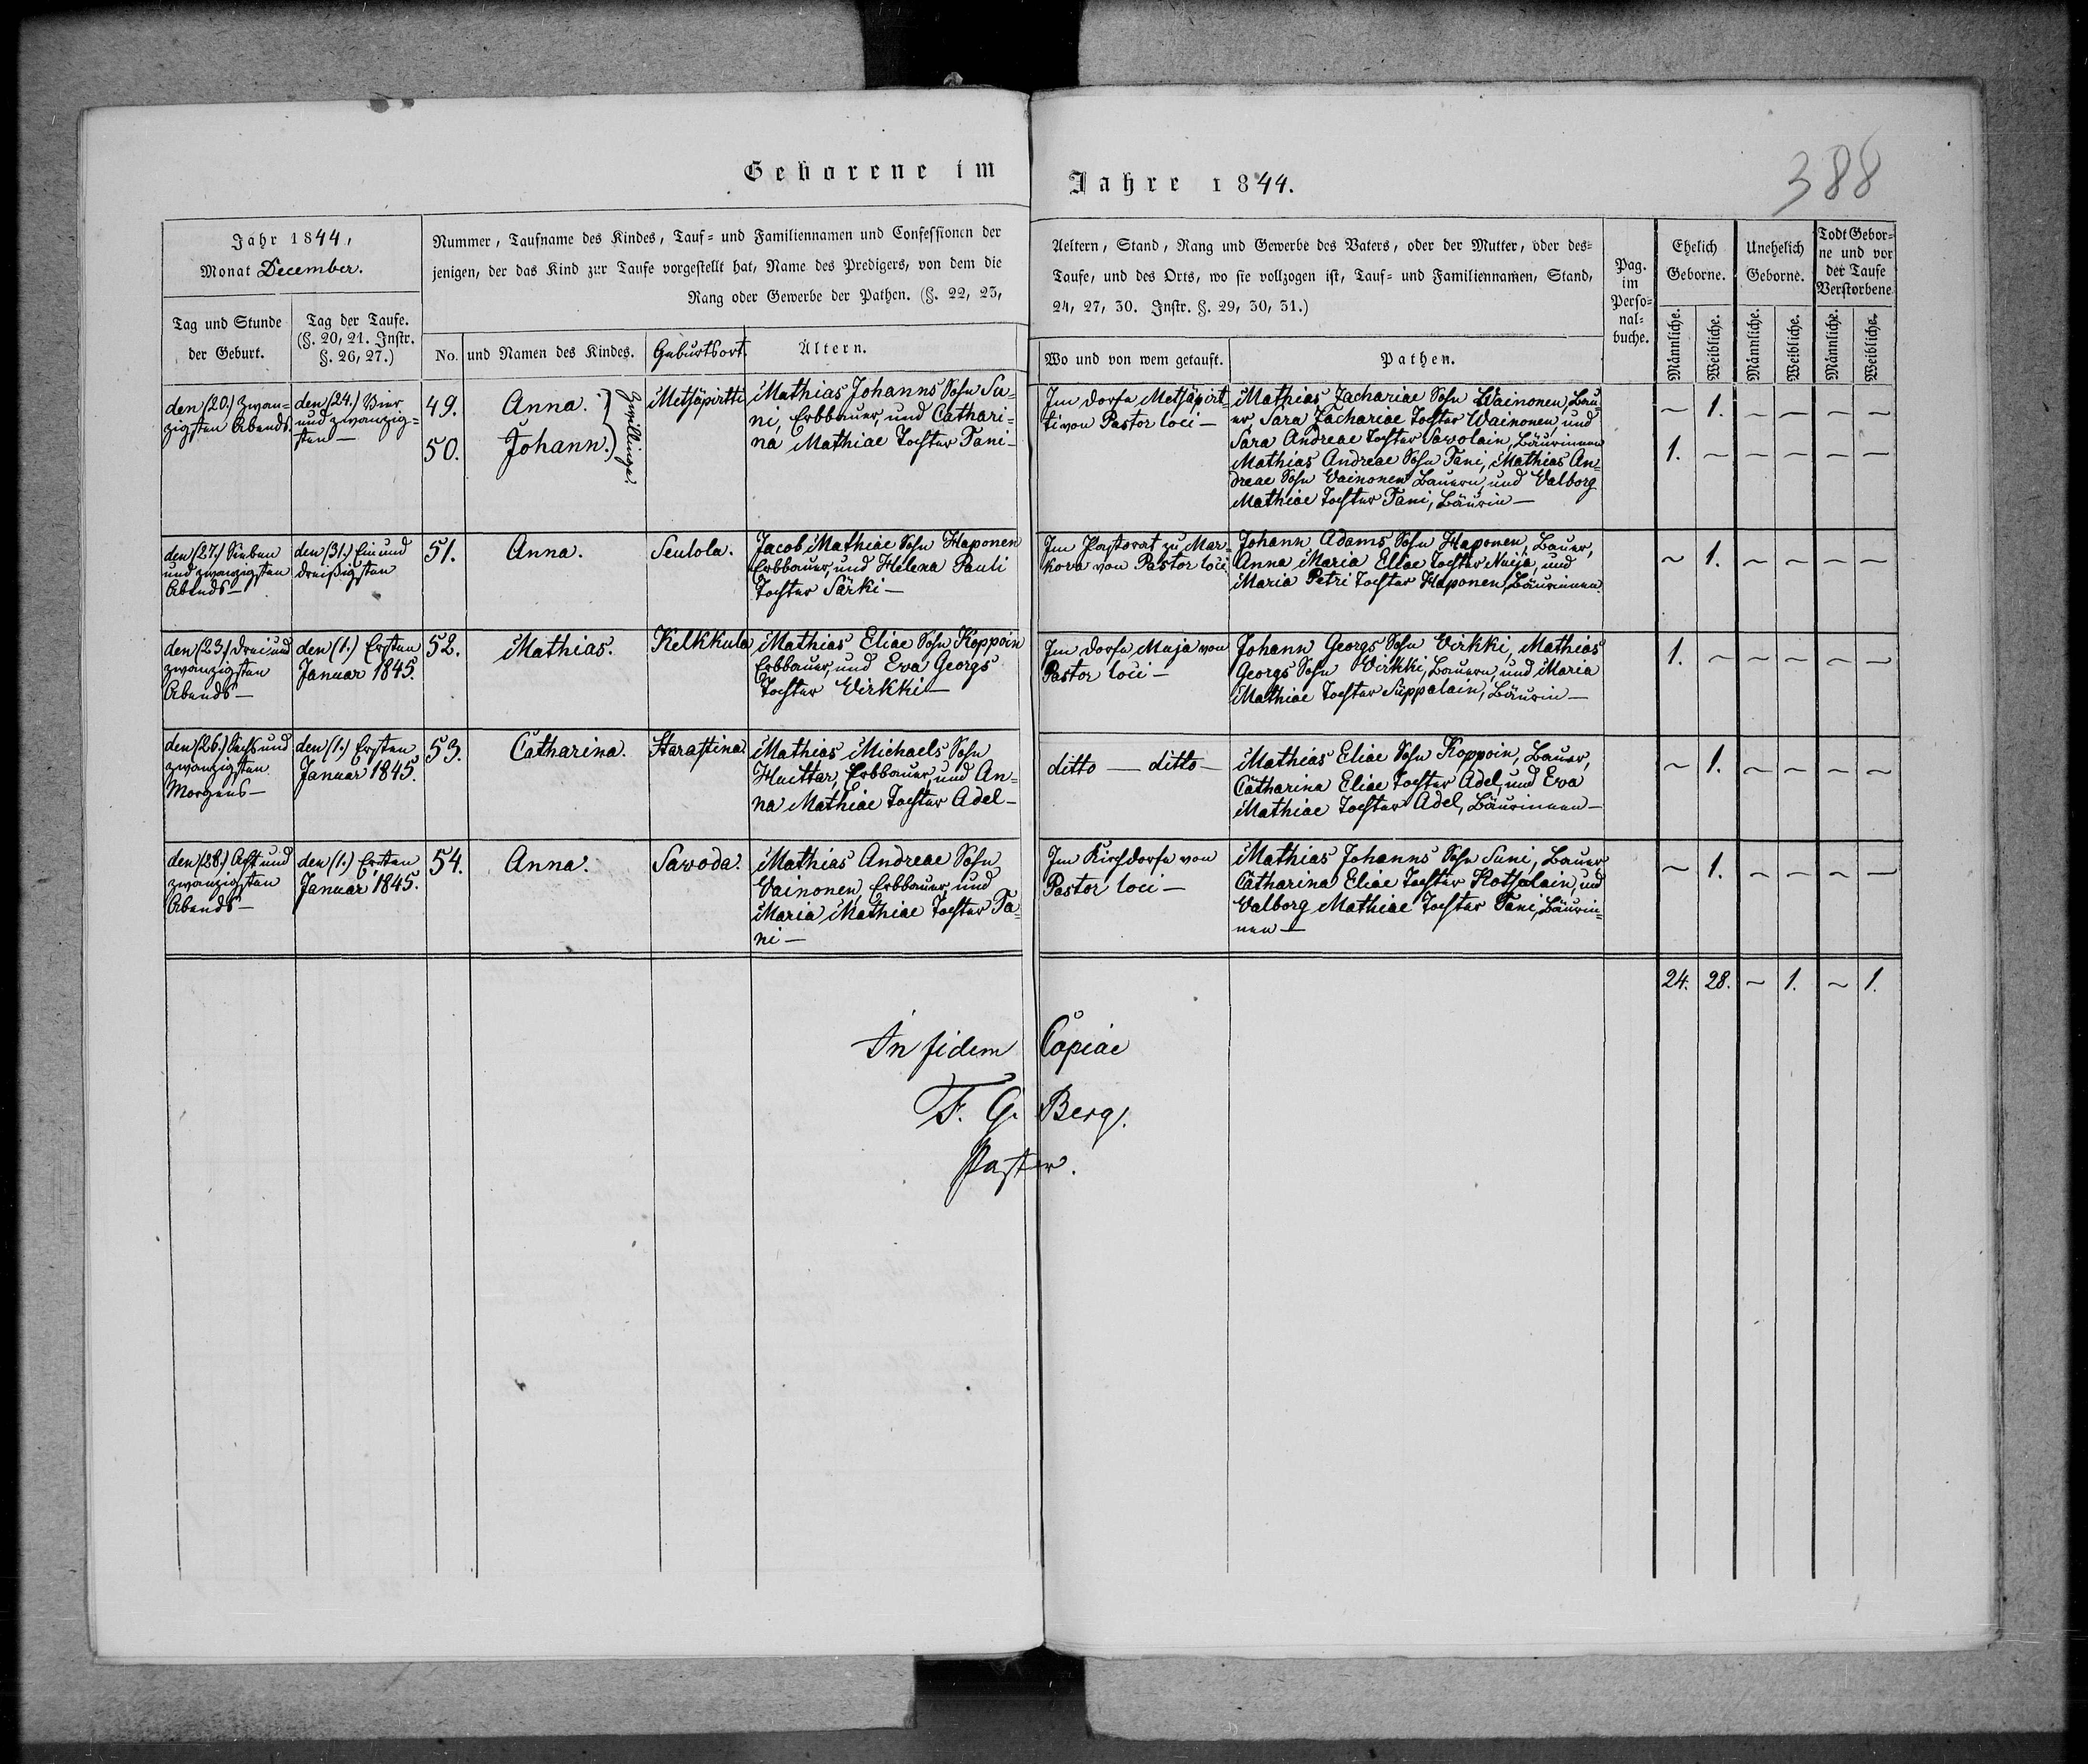 Geborene im
Jahre 1844.
388
Jahr 1844,
Monat December.
Tag und Stunde
der Geburt.
Tag der Taufe.
(§. 20, 21. Instr.
§. 26, 27.)
Nummer, Taufname des Kindes, Tauf- und Familiennamen und Confessionen der
jenigen, der das Kind zur Taufe vorgestellt hat, Name des Predigers, von dem die
Rang oder Gewerbe der Pathen. (§. 22, 23,
No. und Namen des Kindes.
Geburtsort.
Ältern.
Aeltern, Stand, Rang und Gewerbe des Vaters, oder der Mutter, oder des-
Taufe, und des Orts, wo sie vollzogen ist, Tauf- und Familiennamen, Stand,
24, 27, 30. Instr. §. 29, 30, 31.)
Wo und von wem getauft.
Pathen.
Pag.
im
Perso-
nal-
buche.
Ehelich
Geborne.
Unehelich
Geborne.
Todt Gebor-
ne und vor
der Taufe
Verstorbene
Männliche.
Weibliche.
Männliche.
Weibliche.
Männliche.
Weibliche.
den (20.) Zwan-
zigsten Abends.
den (24.) Vier
und zwanzig-
sten —
49.
Anna.
50.
Johann.
Zwillinge
Metsäpirtti
Mathias Johanns Sohn Su-
ni, Erbbauer, und Cathari-
na Mathiae Tochter Tani —
Im Dorfe Metsäpirt-
ti von Pastor loci —
Mathias Zachariae Sohn Wainonen, Bau-
er, Sara Zachariae Tochter Wainonen und
Sara Andreae Tochter Sawolain, Bäurinnen
Mathias Andreae Sohn Tani, Mathias An-
dreae Sohn Vainonen Bauern, und Valborg
Mathiae Tochter Tani, Bäurin —
~ 1. ~ — — —
1. ~ ~ — — —
den (27.) Sieben
und zwanzigsten
Abends —
den (31.) Ein und
dreißigsten
51.
Anna.
Seulola.
Jacob Mathiae Sohn Haponen
Erbbauer, und Helena Pauli
Tochter Särki —
Im Pastorat zu Mar-
kova von Pastor loci
Johann Adams Sohn Haponen, Bauer,
Anna Maria Eliae Tochter Nuija, und
Maria Petri Tochter Haponen, Bäurinnen.
~ 1. ~ — — —
den (23.) Drei und
zwanzigsten
Abends —
den (1.) Ersten
Januar 1845.
52.
Mathias.
Kelkkula
Mathias Eliae Sohn Koppoin
Erbbauer, und Eva Georgs
Tochter Virkki —
Im Dorfe Muja von
Pastor loci —
Johann Georgs Sohn Virkki, Mathias
Georgs Sohn Virkki, Bauern, und Maria
Mathiae Tochter Suppalain, Bäurin —
1. ~ ~ — — —
den (26.) Sechs und
zwanzigsten
Morgens —
den (1.) Ersten
Januar 1845.
53.
Catharina.
Starastina.
Mathias Michaels Sohn
Huittar, Erbbauer, und An-
na Mathiae Tochter Adel —
ditto — ditto —
Mathias Eliae Sohn Koppoin, Bauer,
Catharina Eliae Tochter Adel, und Eva
Mathiae Tochter Adel, Bäurinnen —
~ 1. ~ ~ ~ ~
den (28.) Acht und
zwanzigsten
Abends —
den (1.) Ersten
Januar 1845.
54.
Anna.
Sawoda.
Mathias Andreae Sohn
Vainonen, Erbbauer, und
Maria Mathiae Tochter Ta-
ni —
Im Kirchdorfe von
Pastor loci —
Mathias Johanns Sohn Suni, Bauer
Catharina Eliae Tochter Kotsalain, und
Valborg Mathiae Tochter Tani, Bäurin-
nen —
~ 1. ~ ~ ~ ~
24. 28. ~ 1. ~ 1.
In fidem Copiae
F. G. Berg.
Pastor.